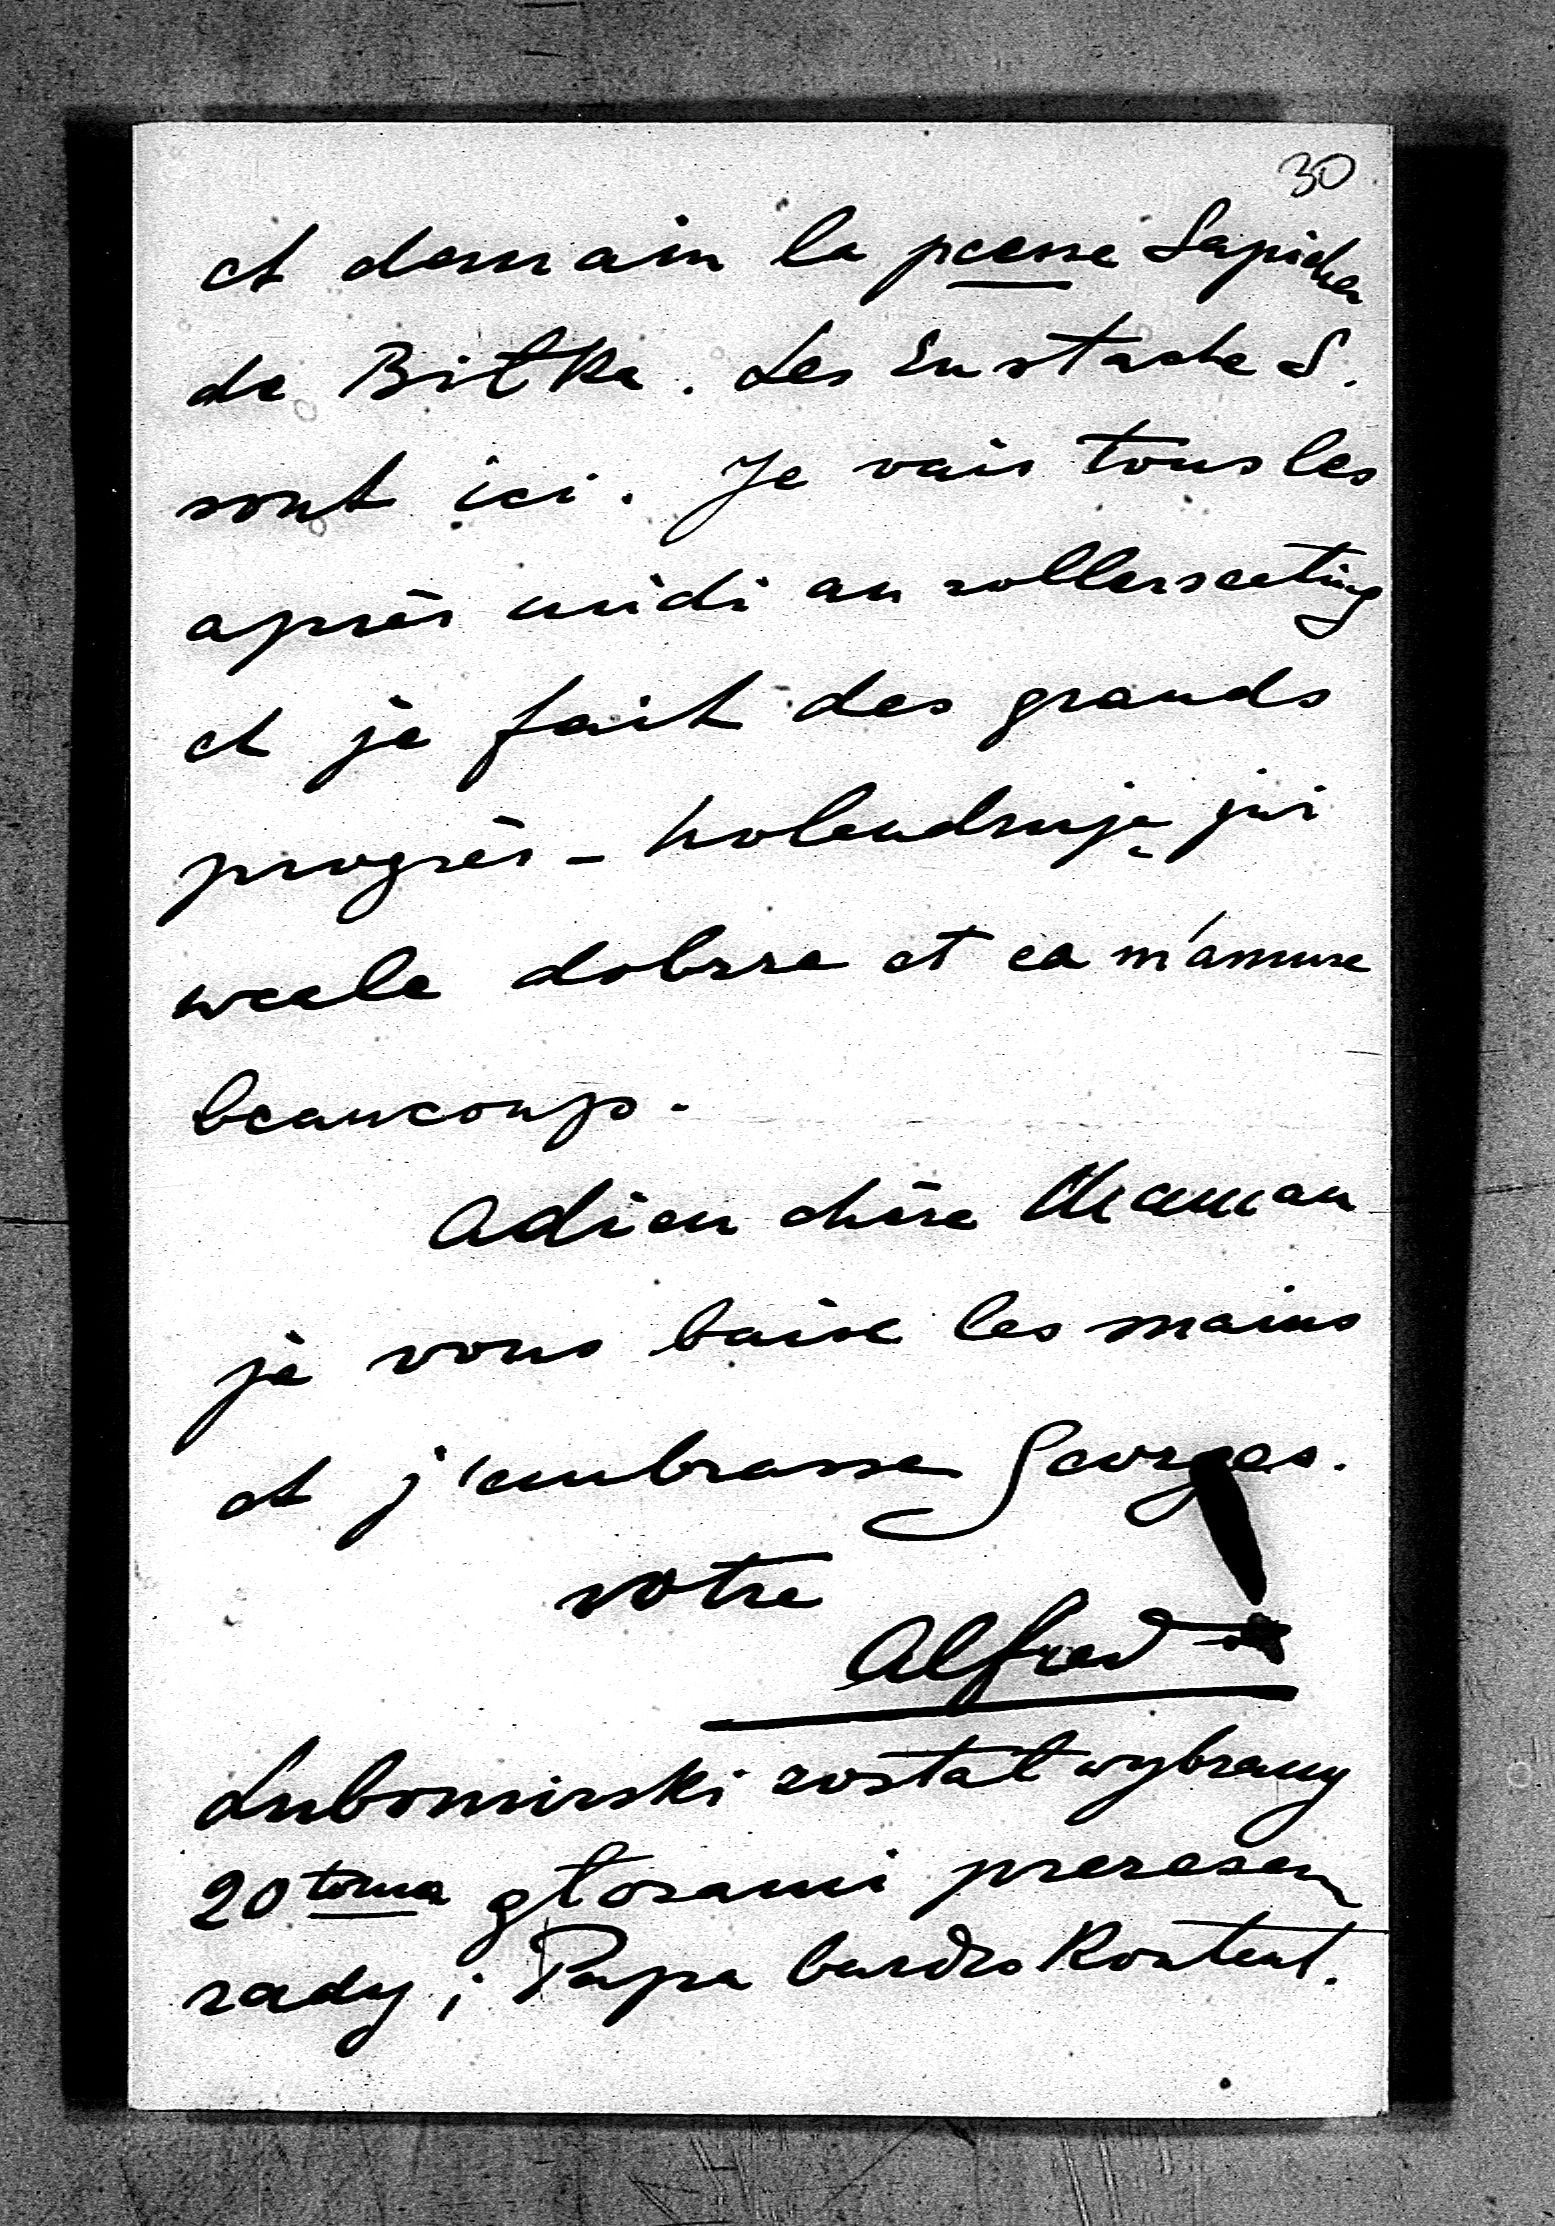 30
et demain la pcesse Sapieha
de Biłka. Les Eustache S.
sont ici. Je vais tous les
après midi au rollerscating
et je fait des grands
progrès - holendruję już
wcale dobrze et ca m'amuse
beaucoup.
Adieu chère Maman
je vous baise les mains
et j'embrasse Georges.
votre
Alfred
Lubomirski został wybrany
20 toma głosami prezesem
rady ; Papa bardzo Kontent.